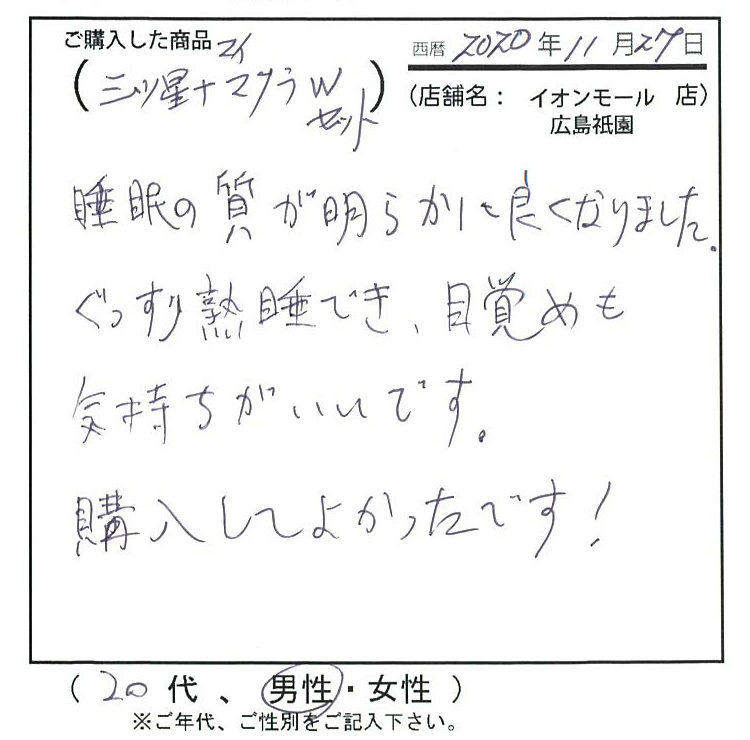 ご購入した商品
西暦 2020年11月27日
(三ツ星+マイマクラWセット)
(店舗名: イオンモール 店)
広島祇園
睡眠の質が明らかに良くなりました。
ぐっすり熟睡でき、目覚めも
気持ちがいいです。
購入してよかったです!
(20代、男性・女性)
※ご年代、ご性別をご記入下さい。